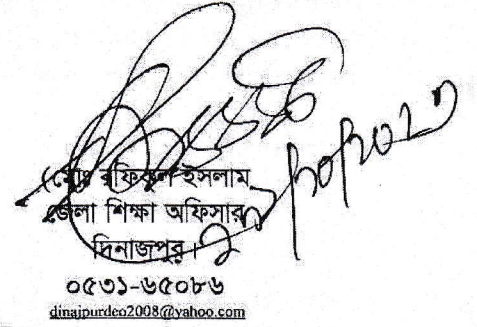 (মোঃ রফিকুল ইসলাম
জেলা শিক্ষা অফিসার
দিনাজপুর।
০৫৩১-৬৫০৮৬
dinajpurdeo2008@yahoo.com